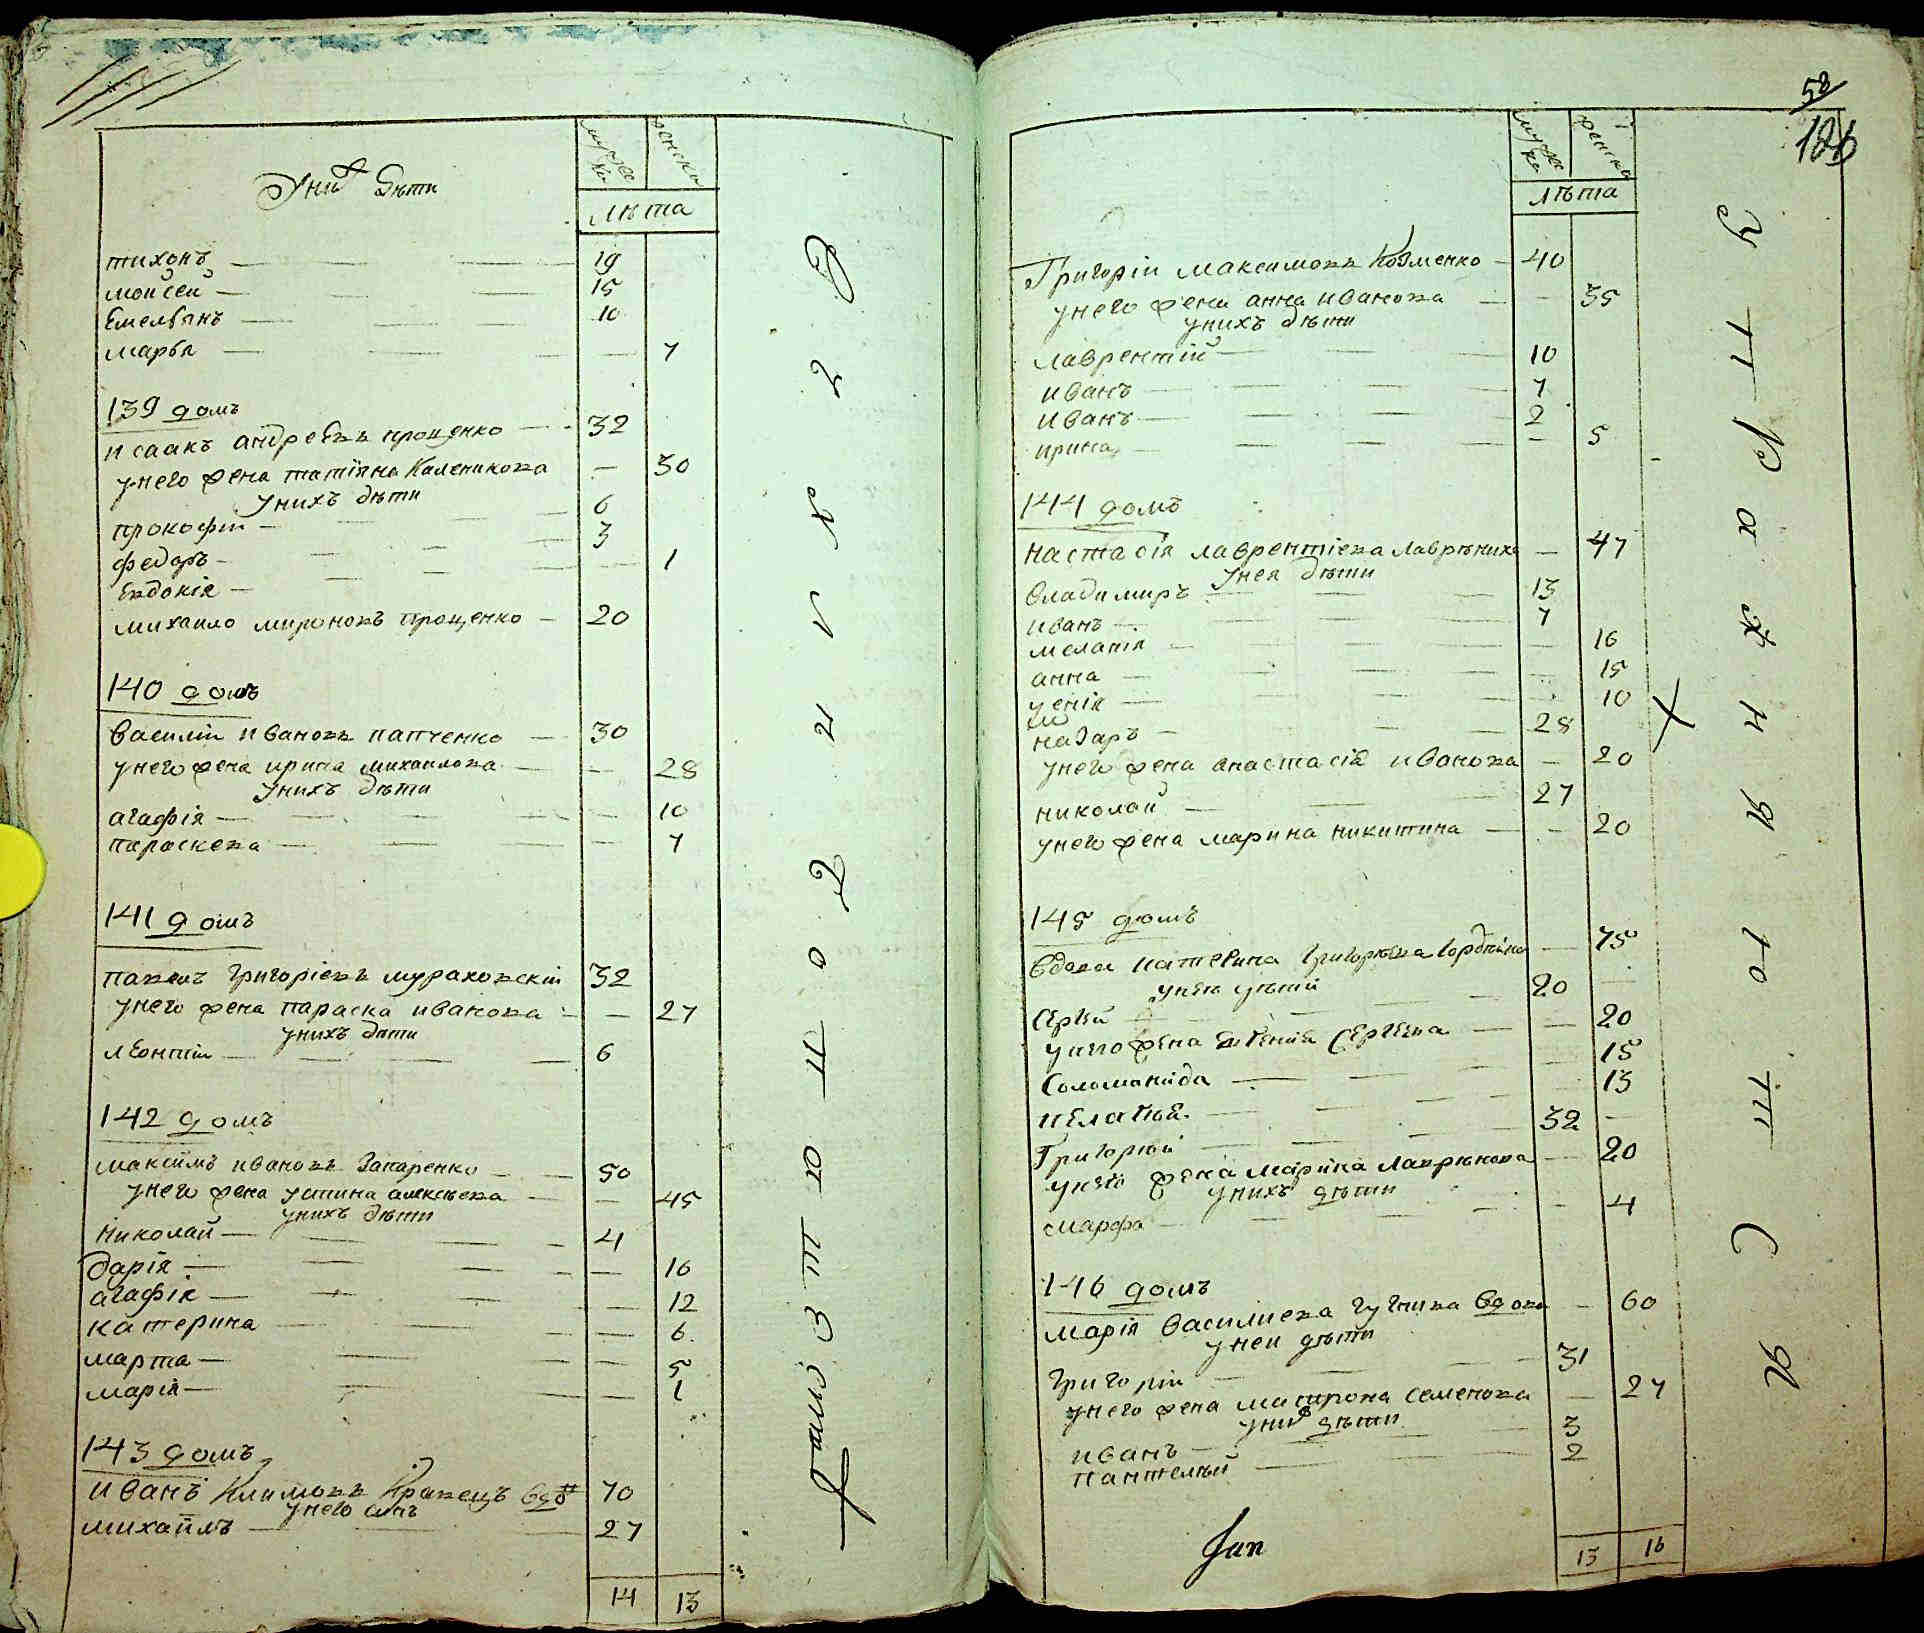 У них дѣти
мужеска
женска
лѣта
тихонъ 19
мойсей 15
Емельянъ 10
марья 7
139 домъ
исаакъ андреевъ проценко 32
унего жена татїяна Каленикова 30
Унихъ дѣти
прокофїи 6
федоръ 3
Евдокія 1
михаило мироновъ проценко 20
140 домъ
василїи ивановъ папченко 30
унего жена ирина михаилова 28
Унихъ дѣти
агафія 10
параскева 7
141 домъ
павелъ григоріевъ мураховскїи 32
Унего жена параска иванова 27
унихъ дѣти
леонтїи 6
142 домъ
максимъ ивановъ Запаренко 50
унего жена устина алексѣева 45
унихъ дѣти
Николай 4
дарія 16
агафія 12
катерина 6
марта 5
марія 1
143 домъ
иванъ Климовъ Кравецъ вдо 70
унего сынъ
михайлъ 27
14 13
58
126
мужеска
женска
лѣта
Григорїи максимовъ Козменко 40
унего жена анна иванова 35
унихъ дѣти
лаврентїй 10
иванъ 7
иванъ 2
ирина 5
144 домъ
настасія лаврентіева 47
унея дѣти
владимиръ 13
иванъ 7
меланія 16
анна 15
10
назаръ 28
унего жена анастасія иванова 20
николай 27
унего жена марина никитина 20
145 домъ
вдова катерина Григорьева 75
Сергѣй 20
унего жена Сергѣева 20
Соломонида 15
пелагѣя 13
Григорїй 32
унего жена марина лаврѣнова 20
унихъ дѣти
марфа 4
146 домъ
марія василиева вдова 60
унеи дѣти
григорїи 31
унего жена матрона семенова 27
уних дѣти
иванъ 3
пантелѣй 2
13 16